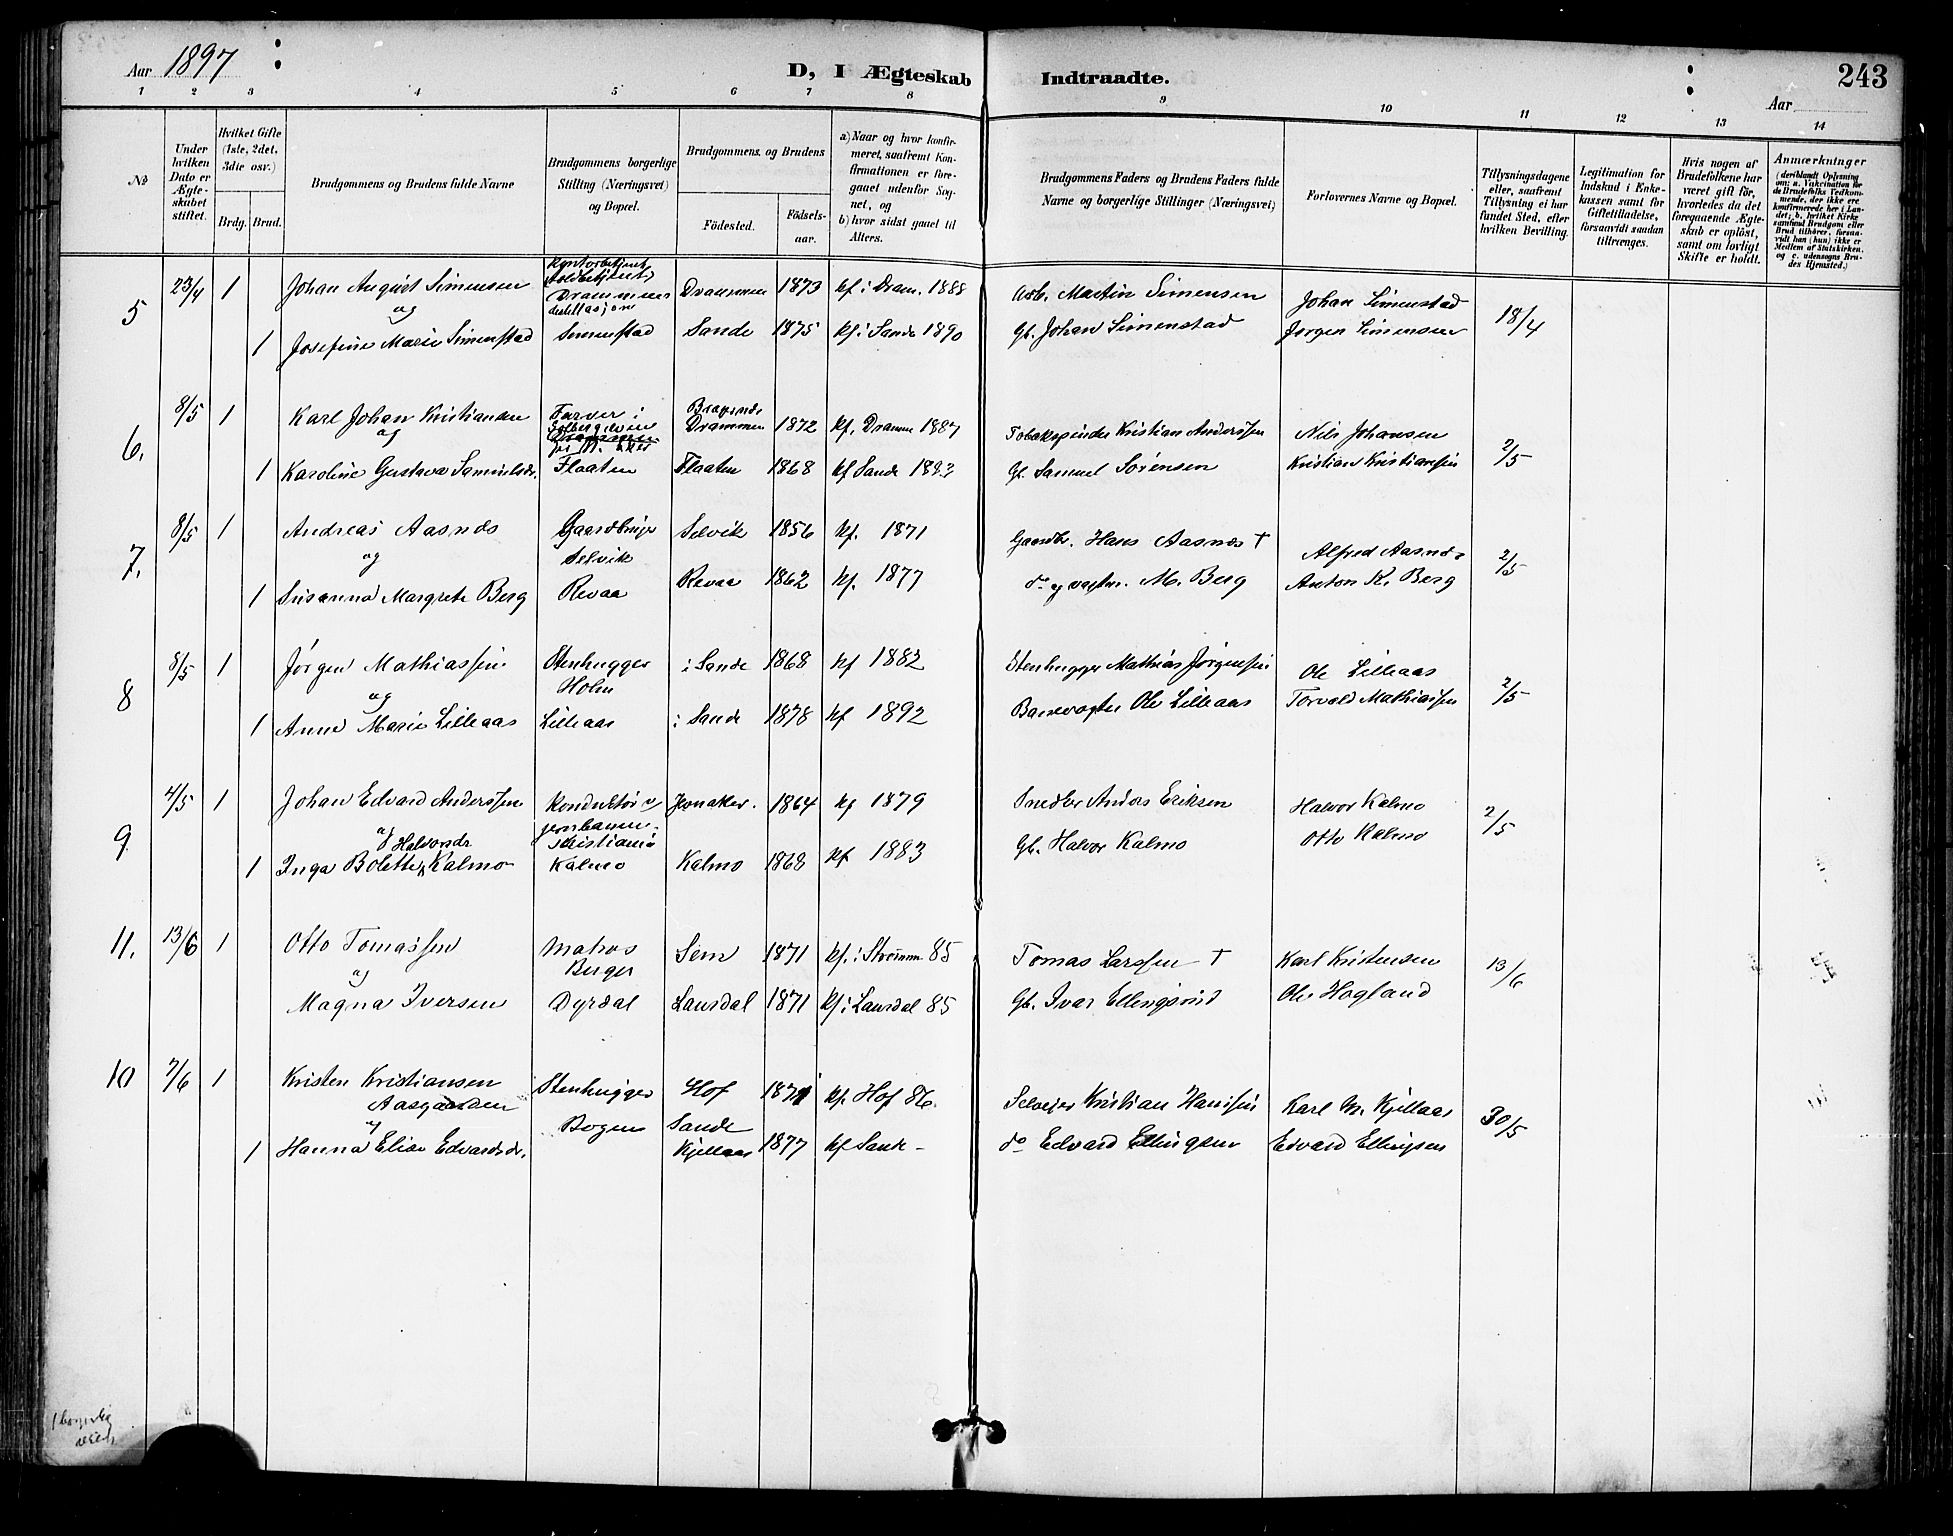 Aar 1897
D, I Ægteskab Indtraadte.
243
Aar
1 2 3 4 5 6 7 8 9 10 11 12 13 14
№
Under hvilken Dato er Ægteskabet stiftet.
Hvilket Gifte (1ste, 2det, 3die osv.)
Brdg. Brud.
Brudgommens og Brudens fulde Navne
Brudgommens borgerlige Stilling (Næringsvei) og Bopæl.
Brudgommens og Brudens
Födested. Födselsaar.
a) Naar og hvor konfirmeret, saafremt Konfirmationen er foregaaet udenför Sognet, og
b) hvor sidst gaaet til Alters.
Brudgommens Faders og Brudens Faders fulde Navne og borgerlige Stillinger (Næringsvei)
Forlovernes Navne og Bopæl.
Tillysningsdagene eller, saafremt Tillysning ei har fundet Sted, efter hvilken Bevilling.
Legitimation for Indskud i Enkekassen samt for Giftetilladelse, forsaavidt saadan tiltrænges.
Hvis nogen af Brudefolkene har været gift för, hvorledes da det foregaaende Ægteskab er oplöst, samt om lovligt Skifte er holdt.
Anmærkninger
(deriblandt Oplysning om: a. Vakcination för de Brudefolks Vedkommende, der ikke ere konfirmerede her i Landet; b. hvilket Kirkesamfund Brudgom eller Brud tilhörer, forsaavidt han (hun) ikke er Medlem af Statskirken, og c. udensogns Brudes Hjemsted.)
5 23/4 1 Johan August Simensen Drammen 1873 kf. i Dram. 1888 Arb. Martin Simensen Johan Simenstad 18/4
og
1 Josefine Marie Simenstad Simenstad Sande 1875 kf. i Sande 1890 Gb. Johan Simenstad Jørgen Simensen
6. 8/5 1 Karl Johan Kristiansen Farver i Drammen 1872 kf. Dramm 1887 Tobakspinder Kristian Anderssen Nils Johansen 2/5
og
1 Karoline Gustava Samuelsdr. Flaaten Flaaten 1868 kf Sande 1883 Gb. Samuel Sørensen Kristian Kristiansen
7. 8/5 1 Andreas Aasnæs Gaardbruger Selvik 1856 kf. 1871 Gaardbr. Hans Aasnæs † Alfred Aasnæs 2/5
og Selvik
1 Susanna Margrete Berg Revaa Revaa 1862 kf. 1877 do og M. Berg Anton K. Berg
8 8/5 1 Jørgen Mathiassen Stenhugger i Sande 1868 kf 1882 Stenhugger Mathias Jørgensen Ole Lilleaas 2/5
og Holm
1 Anne Marie Lilleaas Lilleaas i Sande 1878 kf 1892 Banevogter Ole Lilleaas Torvald Mathiassen
9 4/5 1 Johan Edvard Anderssen Konduktør v/ Jevnaker. 1864 kf 1879 Anders Eriksen Halvor Kalmo 2/5
og Halvorsdr. jernbanen Kristiania
1 Inga Bolette Kalmo Kalmo Kalmo 1868 kf 1883 Gb. Halvor Kalmo Otto Kalmo
11. 13/6 1 Otto Tomassen Matros Sem 1871 kf. i Strømm 85 Tomas Larssen † Karl Kristensen 13/6
og Berger
Magna Iversen Dyrdal Laurdal 1871 kf i Laurdal 85 Gb. Ivar Ellingsrud Ole Hogland
10 7/6 1 Kristen Kristiansen Stenhugger Hof 1871 kf. Hof 86. Selveier Kristian Hansen Karl M. Kjellaas 30/5
Aasgaarden
og Bogen Sande
1 Hanna Elise Edvardsdr. Kjellaas 1877 kf Sande – do Edvard Ellingsen Edvard Ellingsen